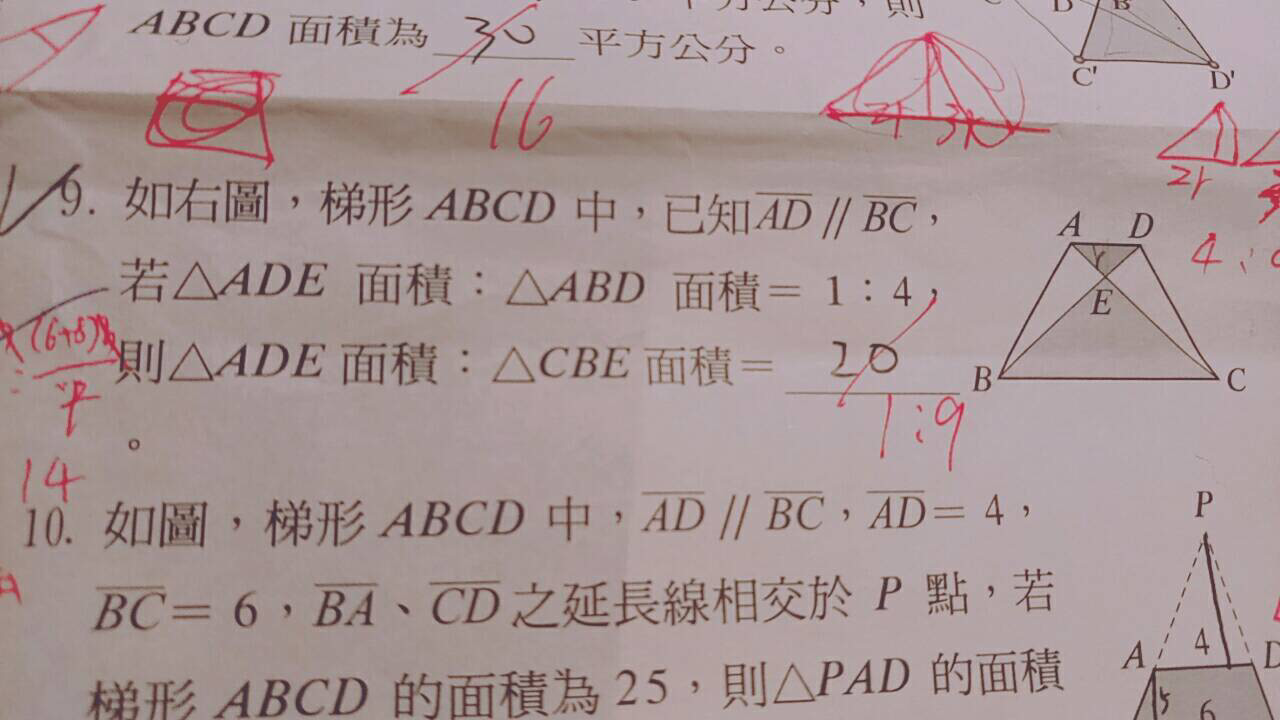 平方公分，則
ABCD 面積為 30 平方公分。
16
C' D'
2r
9. 如右圖，梯形 ABCD 中，已知AD // BC，
若△ADE 面積：△ABD 面積＝ 1：4，
則△ADE 面積：△CBE 面積＝ 20
1:9
。
A D
E
B C
14
10. 如圖，梯形 ABCD 中，AD // BC，AD＝ 4，
BC＝ 6，BA、CD 之延長線相交於 P 點，若
梯形 ABCD 的面積為 25，則△PAD 的面積
P
4
A D
6